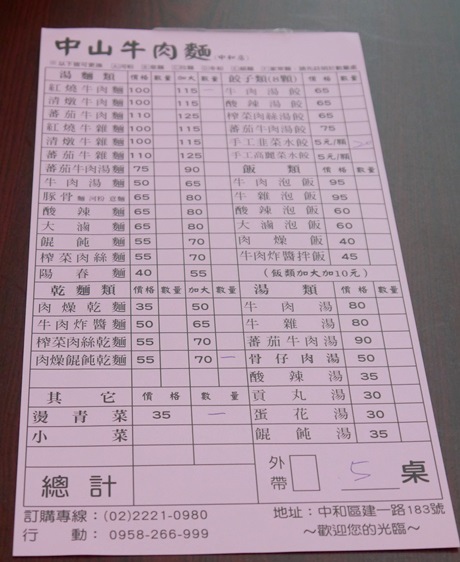 中山牛肉麵(中和店)
湯麵類 價格 數量 加大 數量
紅燒牛肉麵 100 115 一
清燉牛肉麵 100 115
蕃茄牛肉麵 110 125
紅燒牛雜麵 100 115
清燉牛雜麵 100 115
蕃茄牛雜麵 110 125
蕃茄牛肉湯麵 75 90
牛肉湯麵 50 65
豚骨 麵 65 80
酸辣麵 65 80
大滷麵 65 80
餛飩麵 55 70
榨菜肉絲麵 55 70
陽春麵 40 55
乾麵類 價格 數量 加大 數量
肉燥乾麵 35 50
牛肉炸醬麵 50 65
榨菜肉絲乾麵 55 70
肉燥餛飩乾麵 55 70 一
其它 價格 數量
燙青菜 35 一
小菜
餃子類(8顆) 價格 數量
牛肉湯餃 65
酸辣湯餃 65
榨菜肉絲湯餃 65
蕃茄牛肉湯餃 75
手工韭菜水餃 5元/顆
手工高麗菜水餃 5元/顆
飯類 價格 數量
牛肉泡飯 95
牛雜泡飯 95
酸辣泡飯 60
大滷泡飯 60
肉燥飯 40
牛肉炸醬拌飯 45
(飯類加大加10元)
湯類 價格 數量
牛肉湯 80
牛雜湯 80
蕃茄牛肉湯 90
骨仔肉湯 50
酸辣湯 35
貢丸湯 30
蛋花湯 30
餛飩湯 35
總計
外帶 5 桌
訂購專線：(02)2221-0980
行動：0958-266-999
地址：中和區建一路183號
～歡迎您的光臨～